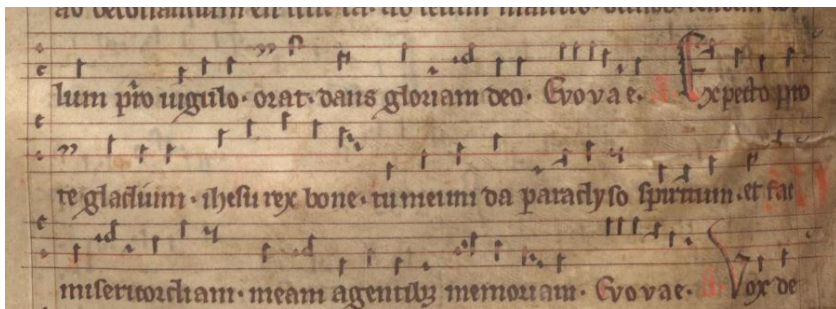 lum pro uigulo · orat · dans gloriam deo · Evovae · Expecto pro
te gladium · ihesu rex bone · tu meum da paraclyso spiritum · et fac
misericordiam · meam agentibꝫ memoriam · Evovae · Vox de